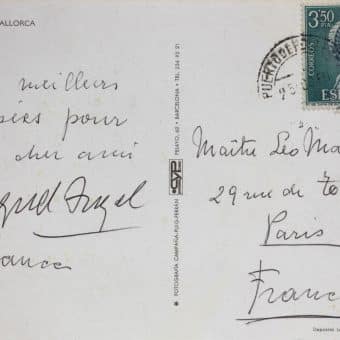 ALLORCA
meilleurs
pour
cher ami
FOTOGRAFIA CAMPAÑA-PUIG-FERRÁN
PELAYO, 62 • BARCELONA • TEL. 256 92 21
3,50
PTA
CORREOS
ESP
PUERTO DE
Maître Léo Ma
29 rue de
Paris
Franc
Deposito L